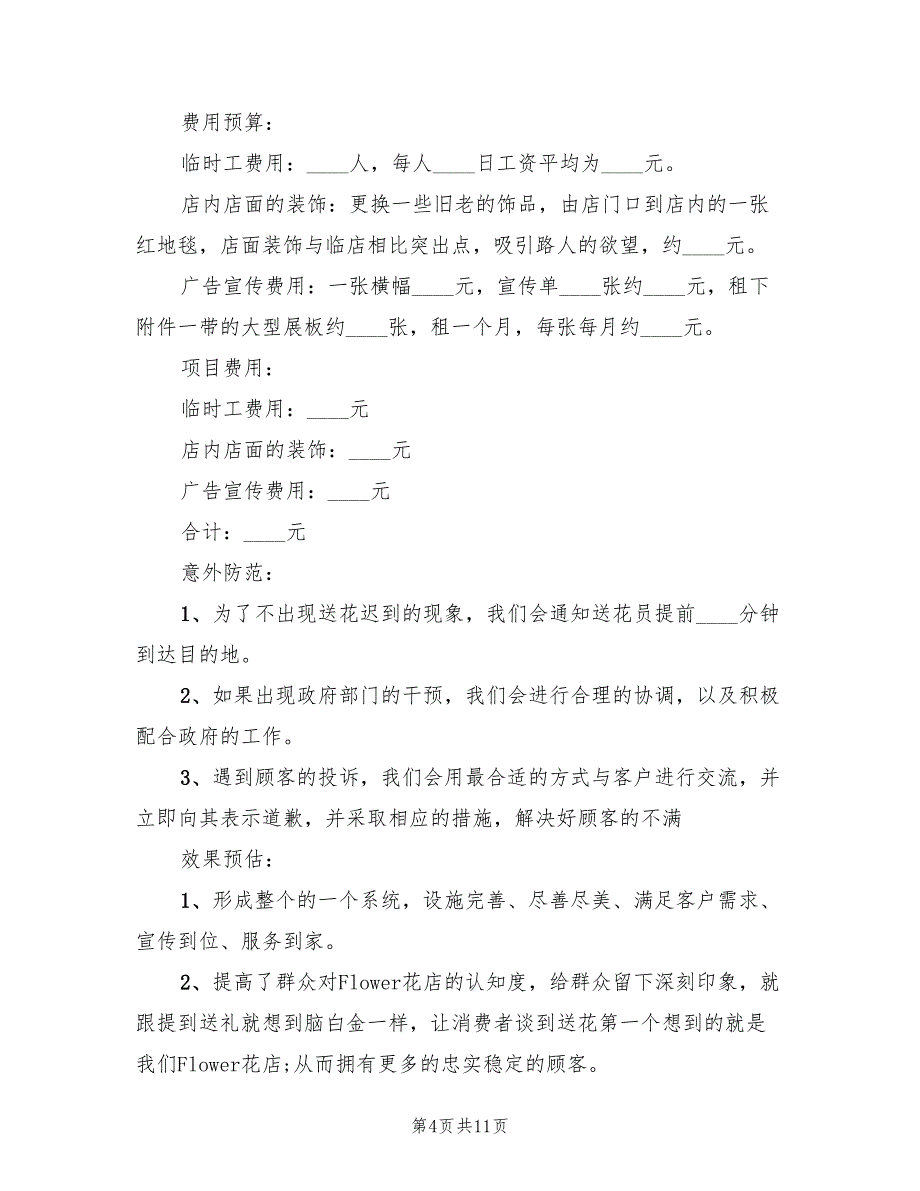 费用预算：
临时工费用：____人，每人____日工资平均为____元。
店内店面的装饰：更换一些旧老的饰品，由店门口到店内的一张
红地毯，店面装饰与临店相比突出点，吸引路人的欲望，约____元。
广告宣传费用：一张横幅____元，宣传单____张约____元，租下
附件一带的大型展板约____张，租一个月，每张每月约____元。
项目费用：
临时工费用：____元
店内店面的装饰：____元
广告宣传费用：____元
合计：____元
意外防范：
1、为了不出现送花迟到的现象，我们会通知送花员提前____分钟
到达目的地。
2、如果出现政府部门的干预，我们会进行合理的协调，以及积极
配合政府的工作。
3、遇到顾客的投诉，我们会用最合适的方式与客户进行交流，并
立即向其表示道歉，并采取相应的措施，解决好顾客的不满
效果预估：
1、形成整个的一个系统，设施完善、尽善尽美、满足客户需求、
宣传到位、服务到家。
2、提高了群众对Flower花店的认知度，给群众留下深刻印象，就
跟提到送礼就想到脑白金一样，让消费者谈到送花第一个想到的就是
我们Flower花店;从而拥有更多的忠实稳定的顾客。
第4页共11页